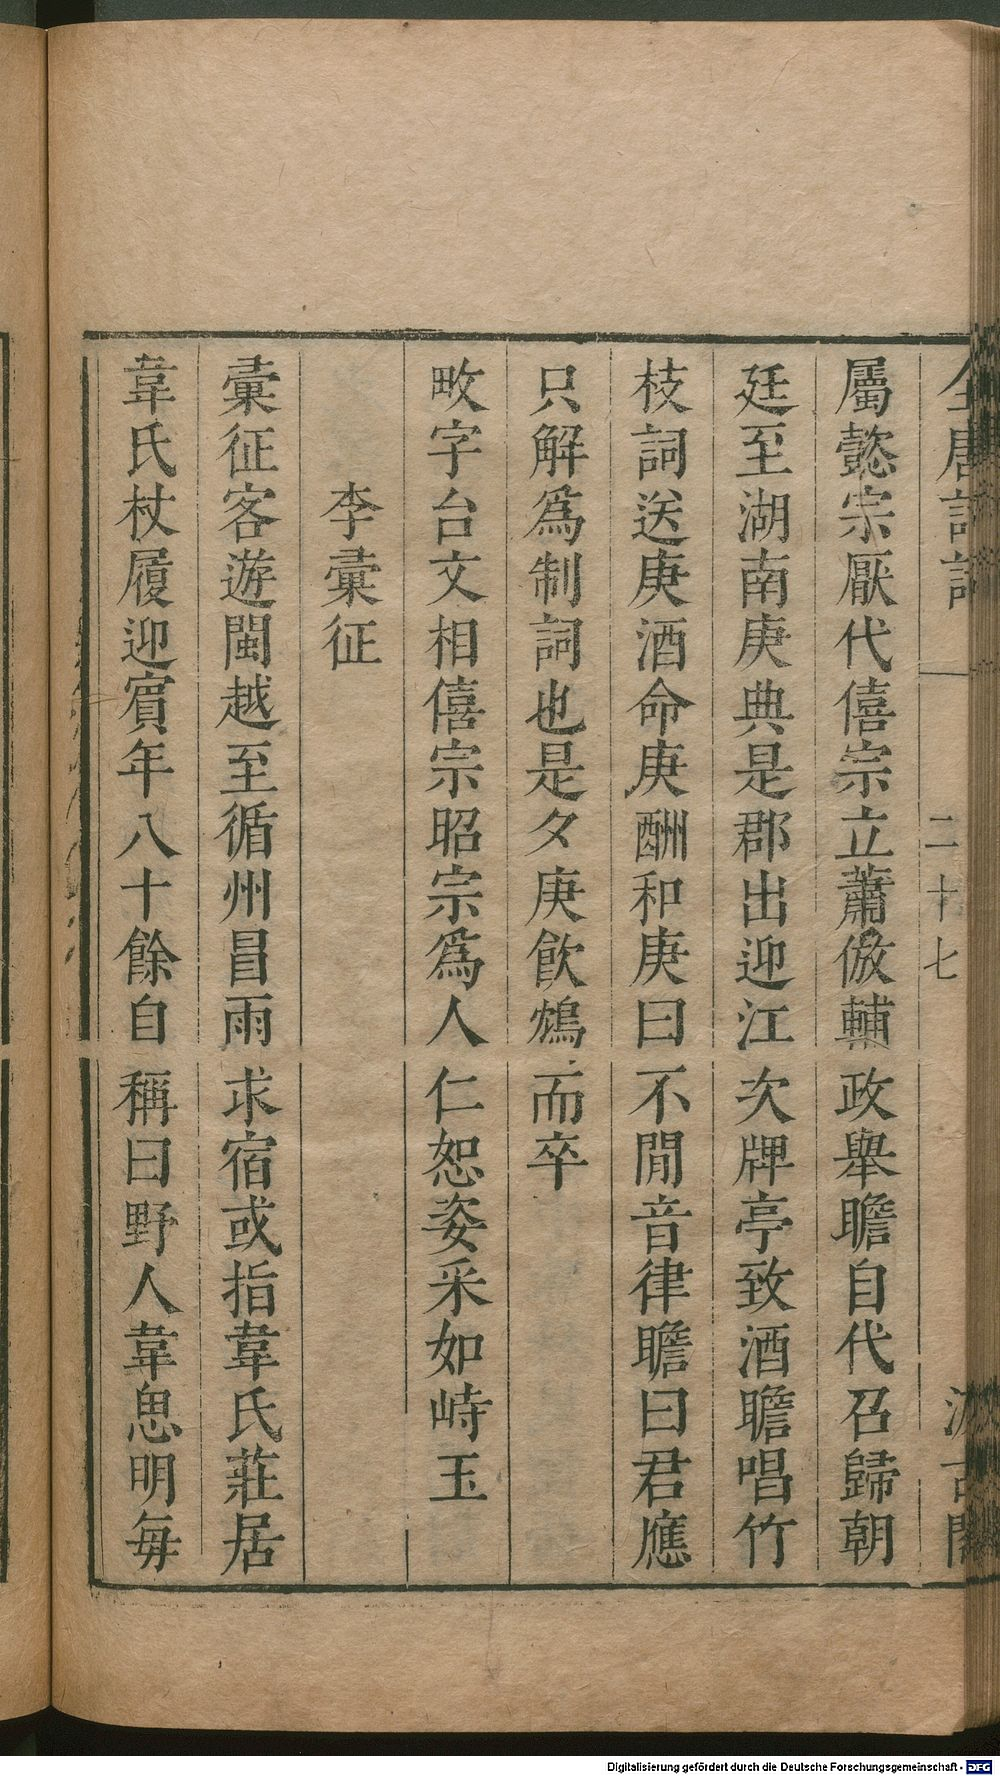 全唐詩話 二十七 汲古閣
屬懿宗厭代僖宗立蕭倣輔政舉瞻自代召歸朝
廷至湖南庚典是郡出迎江次牌亭致酒瞻唱竹
枝詞送庚酒命庚酬和庚曰不閒音律瞻曰君應
只解爲制詞也是夕庚飮鴆而卒
畋字台文相僖宗昭宗爲人仁恕姿采如峙玉
李彙征
彙征客遊閩越至循州昌雨求宿或指韋氏莊居
韋氏杖履迎賔年八十餘自稱曰野人韋思明每
Digitalisierung gefördert durch die Deutsche Forschungsgemeinschaft - DFG